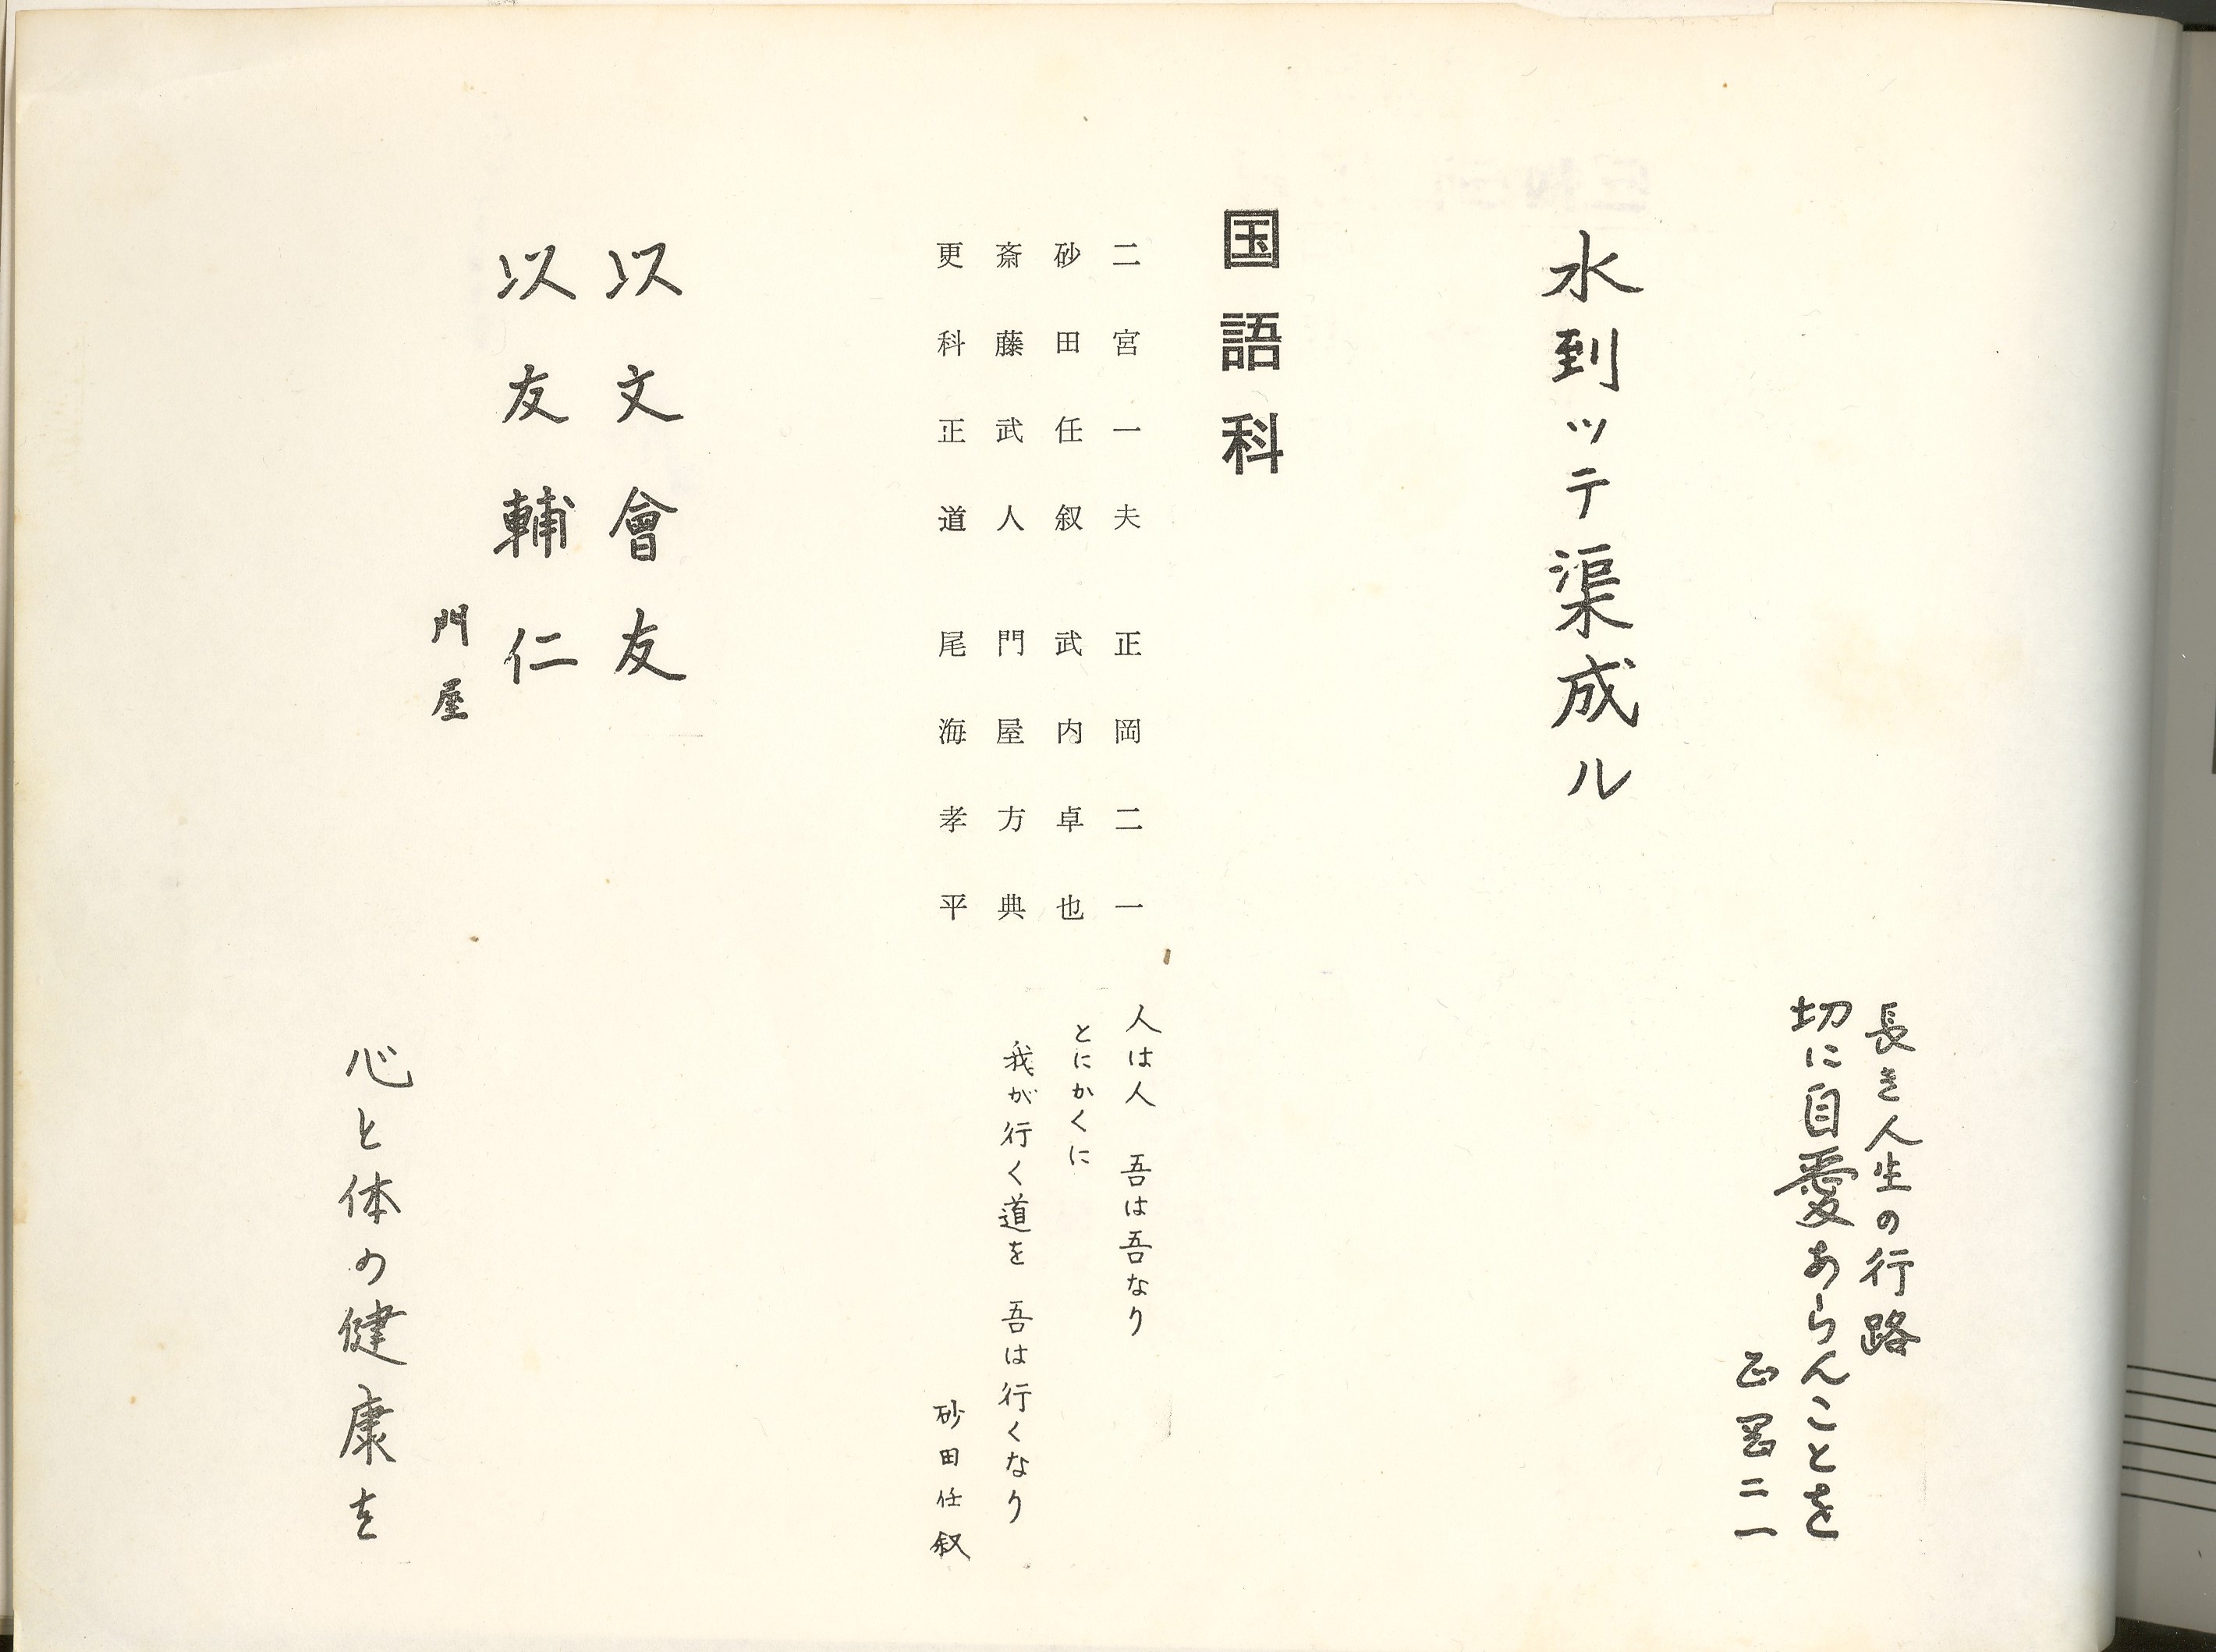 水到ッテ渠成ル
長き人生の行路
切に自愛あらんことを
正岡二一
国語科
二宮一夫
正岡二一
砂田任叙
武内卓也
斎藤武人
門屋方典
更科正道
尾海孝平
人は人　吾は吾なり
とにかくに
我が行く道を　吾は行くなり
砂田任叙
以文會友
以友輔仁
門屋
心と体の健康を